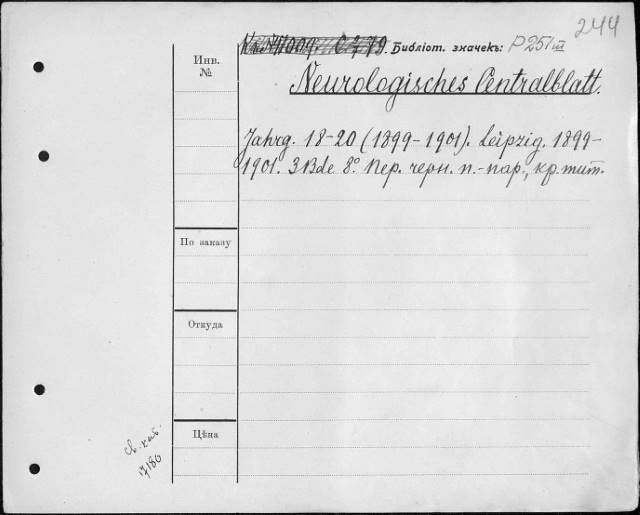 244
Библіот. значекъ: P 251 III
Инв.
№
Neurologisches Centralblatt.
Jahrg. 18-20 (1899-1901). Leipzig. 1899-
1901. 3 Bde 8° Пер. черн. п.-пар., кр. тит.
По заказу
Откуда
Цѣна
7180